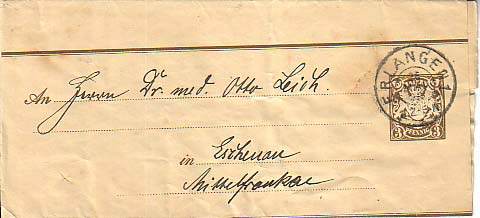 ERLANGEN 1
An Herrn Dr. med. Otto Leich.
3 PFENNIG 3
in Eschenau
Mittelfranken